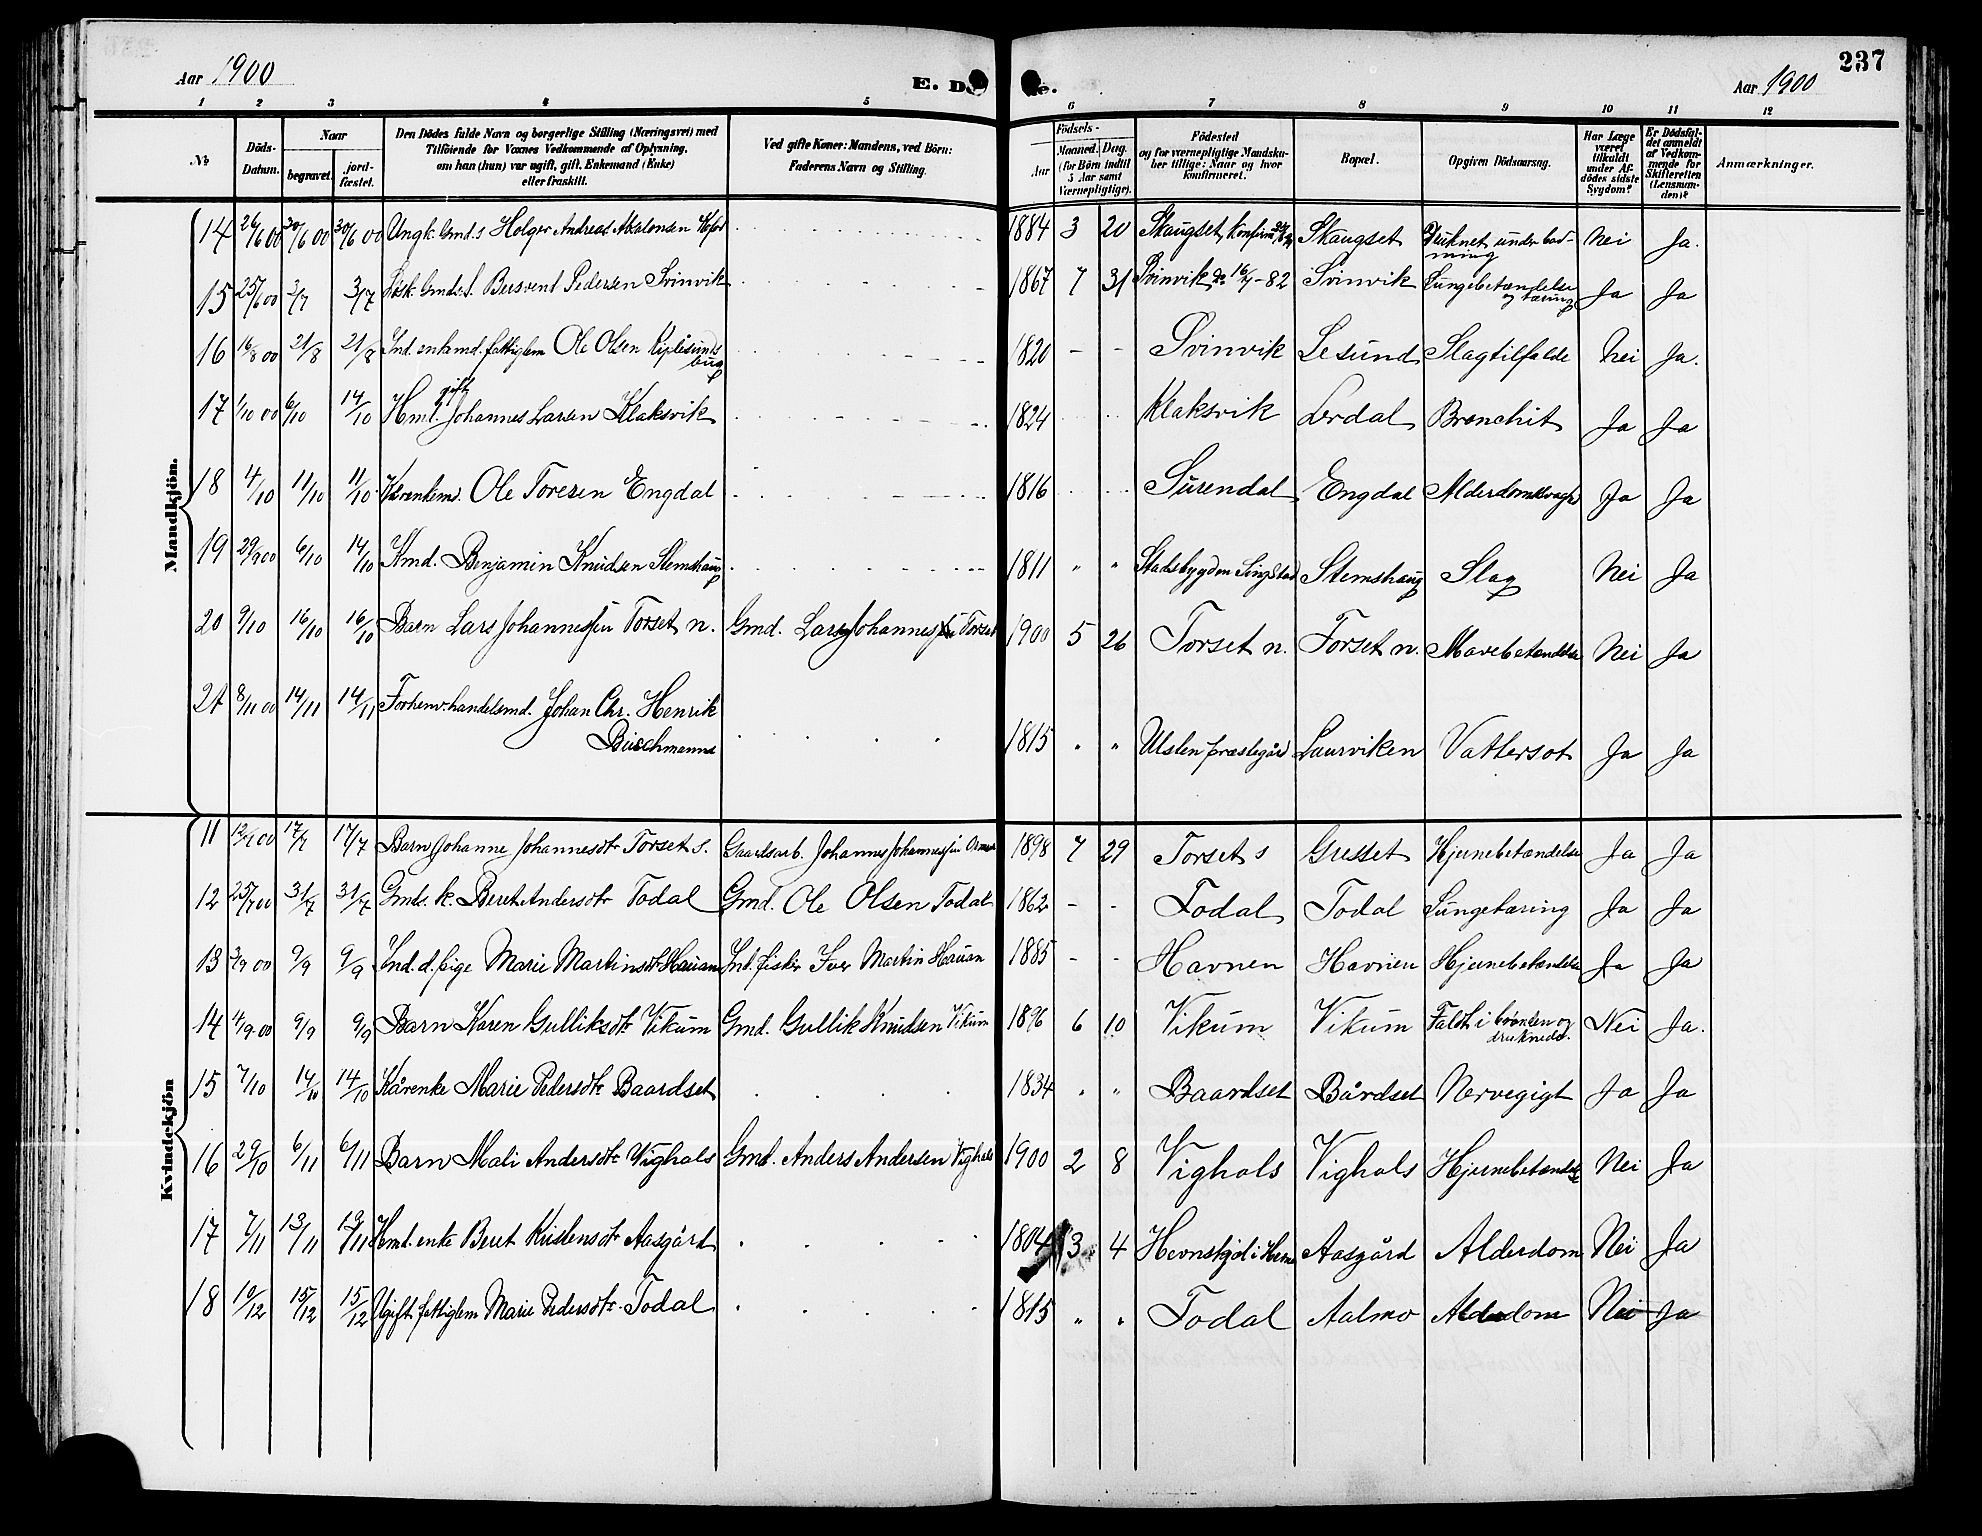 Aar 1900
E. Dö
de.
237
Aar 1900
1 2 3 4 5 6 7 8 9 10 11 12
No
Döds-Datum.
Naar
begravet.
jord-fæstet.
Den Dödes fulde Navn og borgerlige Stilling (Næringsvei) med
Tilföiende for Voxnes Vedkommende af Oplysning,
om han (hun) var ugift, gift, Enkemand (Enke)
eller fraskilt.
Ved gifte Koner: Mandens, ved Börn:
Faderens Navn og Stilling.
Födsels-
Aar
Maaned. Dag.
(for Börn indtil
5 Aar samt
Værnepligtige).
Födested
og for værnepligtige Mandsku-
ber tillige: Naar og hvor
konfirmeret.
Bopæl.
Opgiven Dödsaarsag.
Har Læge
været
tilkaldt
under Af-
dödes sidste
Sygdom?
Er Dödsfal-
det anmeldt
af Vedkom-
mende for
Skifteretten
(Lensman-
den)?
Anmærkninger.
Mandkjön.
14 26/6 00 30/6 00 30/6 00 Ungk. Gmd.s Holger Andreas Absalonsen 1884 3 20 Skaugset Konfirm. Skaugset Druknet under bad-
ning Nei Ja.
15 25/6 00 3/7 3/7 Gmds.s. Bersvent Pedersen Svinvik 1867 7 31 Svinvik do 16/7-82 Svinvik Lungebetændelse
og tæring Ja Ja
16 16/8 00 21/8 21/8 Ind. enkemd. fattiglem Ole Olsen 1820 - - Svinvik Lesund Slagtilfælde Nei Ja.
17 1/10 00 6/10 14/10 Hmd. gift Johannes Larsen Klaksvik 1824 Klaksvik Lerdal Bronchit Ja Ja
18 4/10 11/10 11/10 Kårenkemd. Ole Toresen Engdal 1816 Surendal Engdal Alderdomssvaghed Ja Ja
19 29/9 00 6/10 14/10 Kmd. Benjamin Knudsen Stemshaug 1811 " " Stadsbygden Stemshaug Slag Nei Ja
20 9/10 16/10 16/10 Barn Lars Johannes Larssøn Torset n. Gmd. Lars Johannessen Torset 1900 5 26 Torset n. Torset n. Mavebetændelse Nei Ja
21 8/11 00 14/11 14/11 Forhenv. handelsmd. Johan Chr. Henrik
Buschmann 1815 " " præstegård Laurviken Vattersot Ja Ja
Kvindekjön
11 12/7 00 17/7 17/7 Barn Johanne Johannesdtr Torset s. Gaardsarb. Johannes Johannessen 1898 7 29 Torset s Gresset Hjernebetændelse Ja Ja
12 25/7 00 31/7 31/7 Gmds. k. Beret Andersdtr Todal Gmd. Ole Olsen Todal 1862 - - Todal Todal Lungetæring Ja Ja
13 3/9 00 9/9 9/9 Ind. d. pige Marie Martinsdtr Hauan Ind. fisker Iver Martin Hauan 1885 - - Havnen Havnen Hjernebetændelse Ja Ja
14 4/9 00 9/9 9/9 Barn Karen Gulliksdtr Vikum Gmd. Gullik Knudsen Vikum 1896 6 10 Vikum Vikum Faldt i brønden og
druknede. Nei Ja.
15 7/10 14/10 14/10 Kårenke Marie Pedersdtr Baardset 1834 " " Baardset Bårdset Nervegigt Ja Ja
16 29/10 6/11 6/11 Barn Mali Andersdtr Vighals Gmd. Anders Andersen Vighals 1900 2 8 Vighals Vighals Hjernebetændelse Nei Ja
17 7/11 13/11 13/11 Hmd. enke Beret Kristensdtr Aasgård 1804 3 4 Hevnskjel i Hevne Aasgård Alderdom Nei Ja
18 10/12 15/12 15/12 Ugift fattiglem Marie Pedersdtr. Todal 1815 " " Todal Aalmo Alderdom Nei Ja